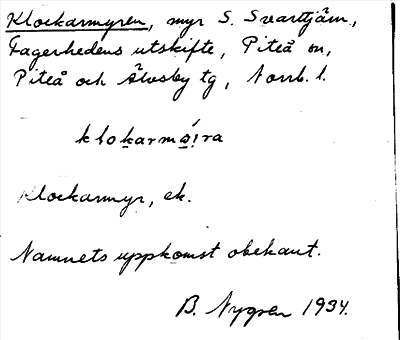 Klockarmyren, myr S. Svarttjärn,
Fagerhedens utskifte, Piteå sn,
Piteå och Älvsby tg, Norrb. l.
klokarmǿ̣i̭ra
Klockarmyr, ek.
Namnets uppkomst obekant.
B. Nygren 1934.